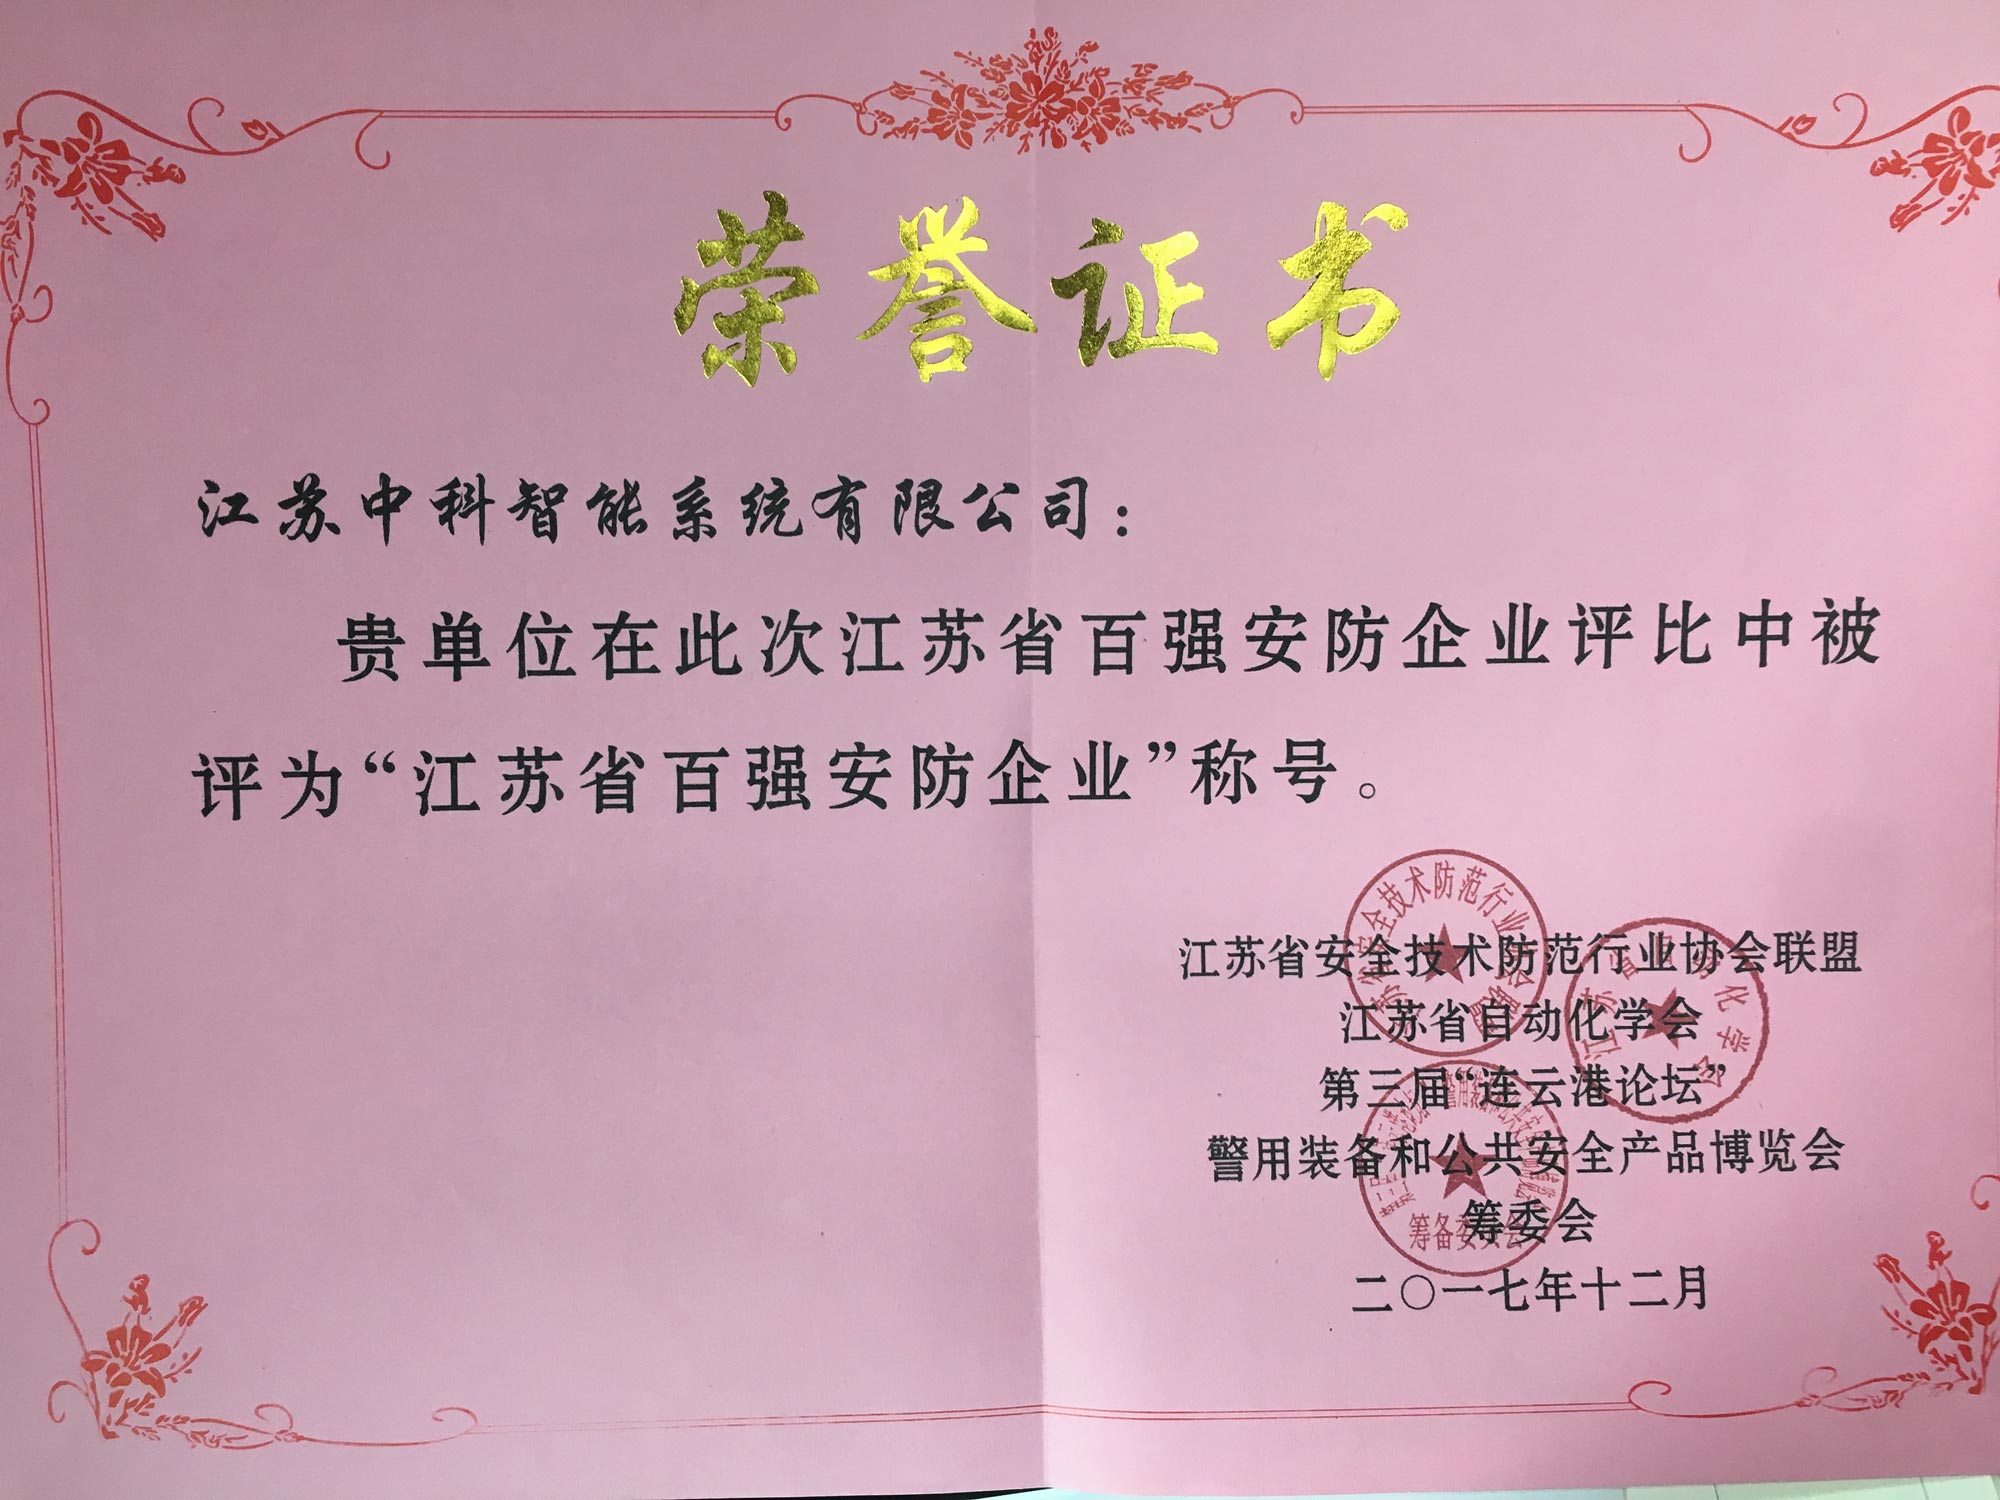 荣誉证书
江苏中科智能系统有限公司：
贵单位在此次江苏省百强安防企业评比中被
评为“江苏省百强安防企业”称号。
江苏省安全技术防范行业协会联盟
江苏省自动化学会
第三届“连云港论坛”
警用装备和公共安全产品博览会
筹委会
二〇一七年十二月
筹备委员会